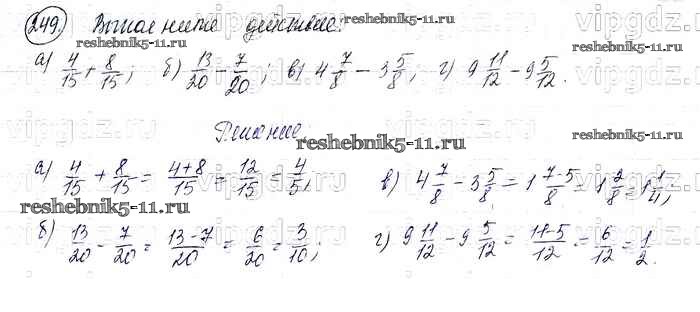 249. Выполните действие:
reshebnik5-11.ru reshebnik5-11.ru
а) 4/15 + 8/15; б) 13/20 - 7/20; в) 4 7/8 - 3 5/8; г) 9 11/12 - 9 5/12.
vipgdz.ru
Решение.
reshebnik5-11.ru reshebnik5-11.ru
а) 4/15 + 8/15 = (4+8)/15 = 12/15 = 4/5; в) 4 7/8 - 3 5/8 = 1 (7-5)/8 = 1 2/8 = 1 1/4;
reshebnik5-11.ru
б) 13/20 - 7/20 = (13-7)/20 = 6/20 = 3/10; г) 9 11/12 - 9 5/12 = (11-5)/12 = 6/12 = 1/2.